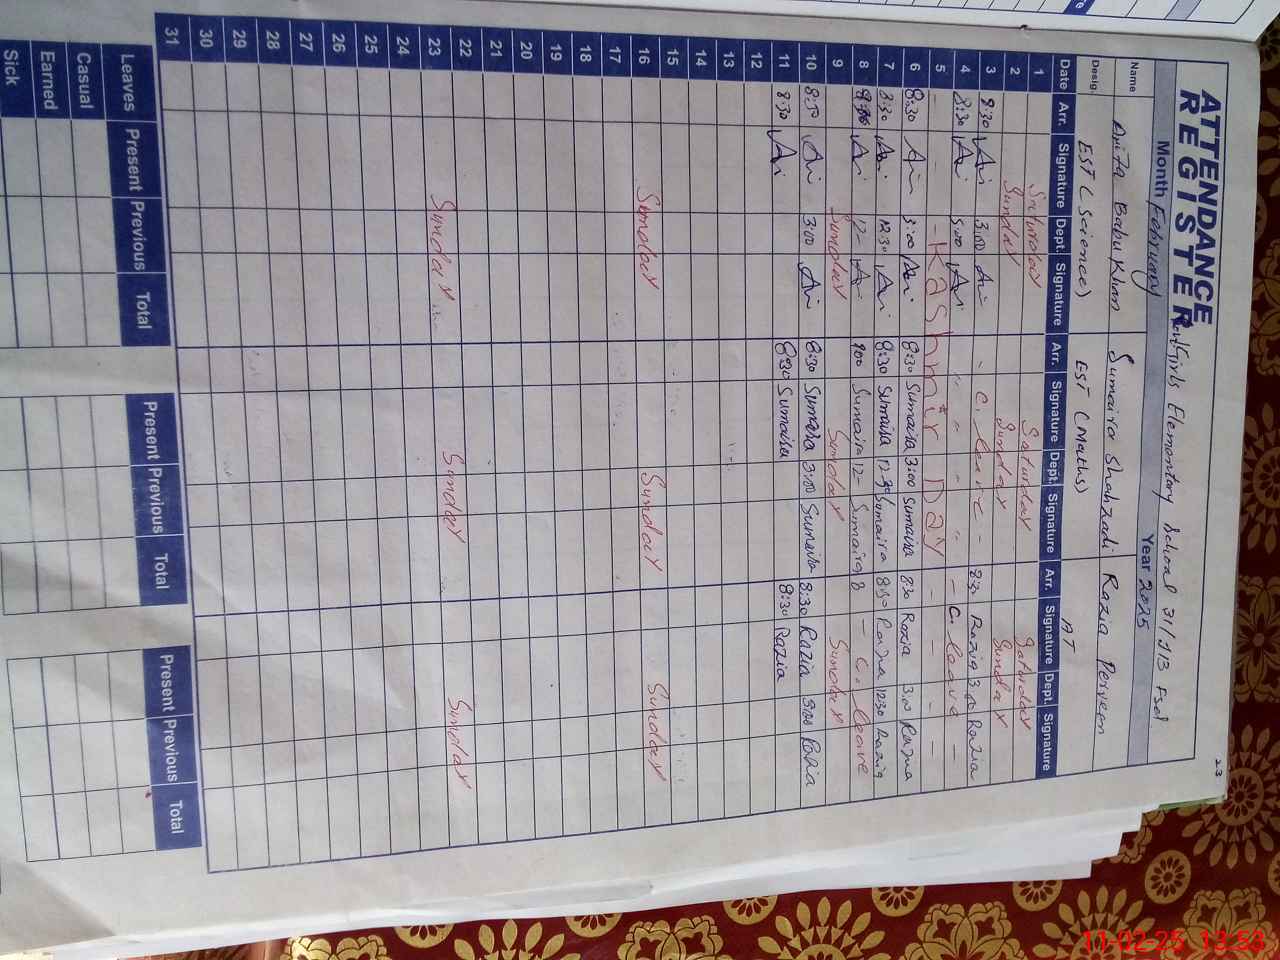 23
ATTENDANCE REGISTER Girls Elementary School 31/JB Fsd
Month February Year 2025
Name Babu Khan Sumaira Shahzadi Razia Perveen
Desig. EST (Science) EST (Maths) AT
Date Arr. Signature Dept. Signature Arr. Signature Dept. Signature Arr. Signature Dept. Signature
1 Saturday Saturday Saturday
2 Sunday Sunday Sunday
3 8:30 3:00 - C. leave - Razia 3:00 Razia
4 8:30 3:00 - C. leave -
5 - - - Kashmir Day - - - -
6 8:30 3:00 8:30 Sumaira 3:00 Sumaira 8:30 Razia 3:00 Razia
7 8:30 12:30 8:30 Sumaira 12:30 Sumaira 8:30 Razia 12:30 Razia
8 12- 900 Sumaira 12- Sumaira 8 - C. leave
9 Sunday Sunday Sunday
10 8:30 3:00 8:30 Sumaira 3:00 Sumaira 8:30 Razia 3:00 Razia
11 8:30 8:30 Sumaira 8:30 Razia
12
13
14
15
16 Sunday Sunday Sunday
17
18
19
20
21
22
23 Sunday Sunday Sunday
24
25
26
27
28
29
30
31
Leaves Present Previous Total Present Previous Total Present Previous Total
Casual
Earned
Sick
11-02-25 13:53